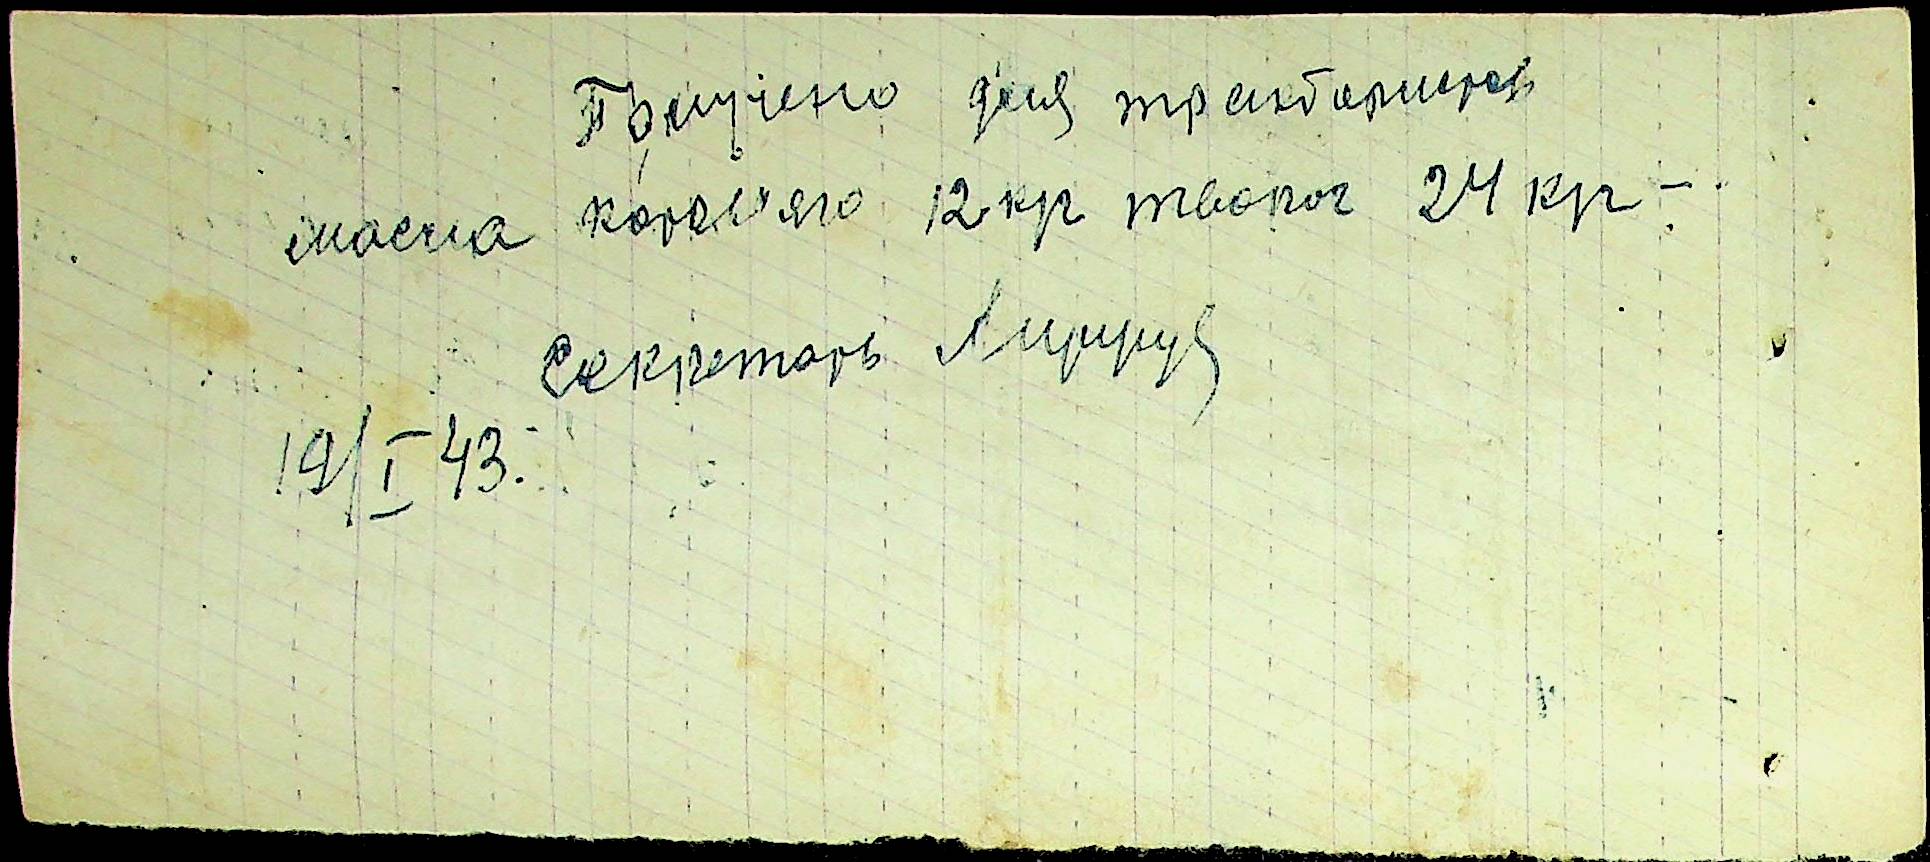 Получено для трактористов
масла коровяго 12 кгр творог 24 кгр-
Секретарь
19/I 43.